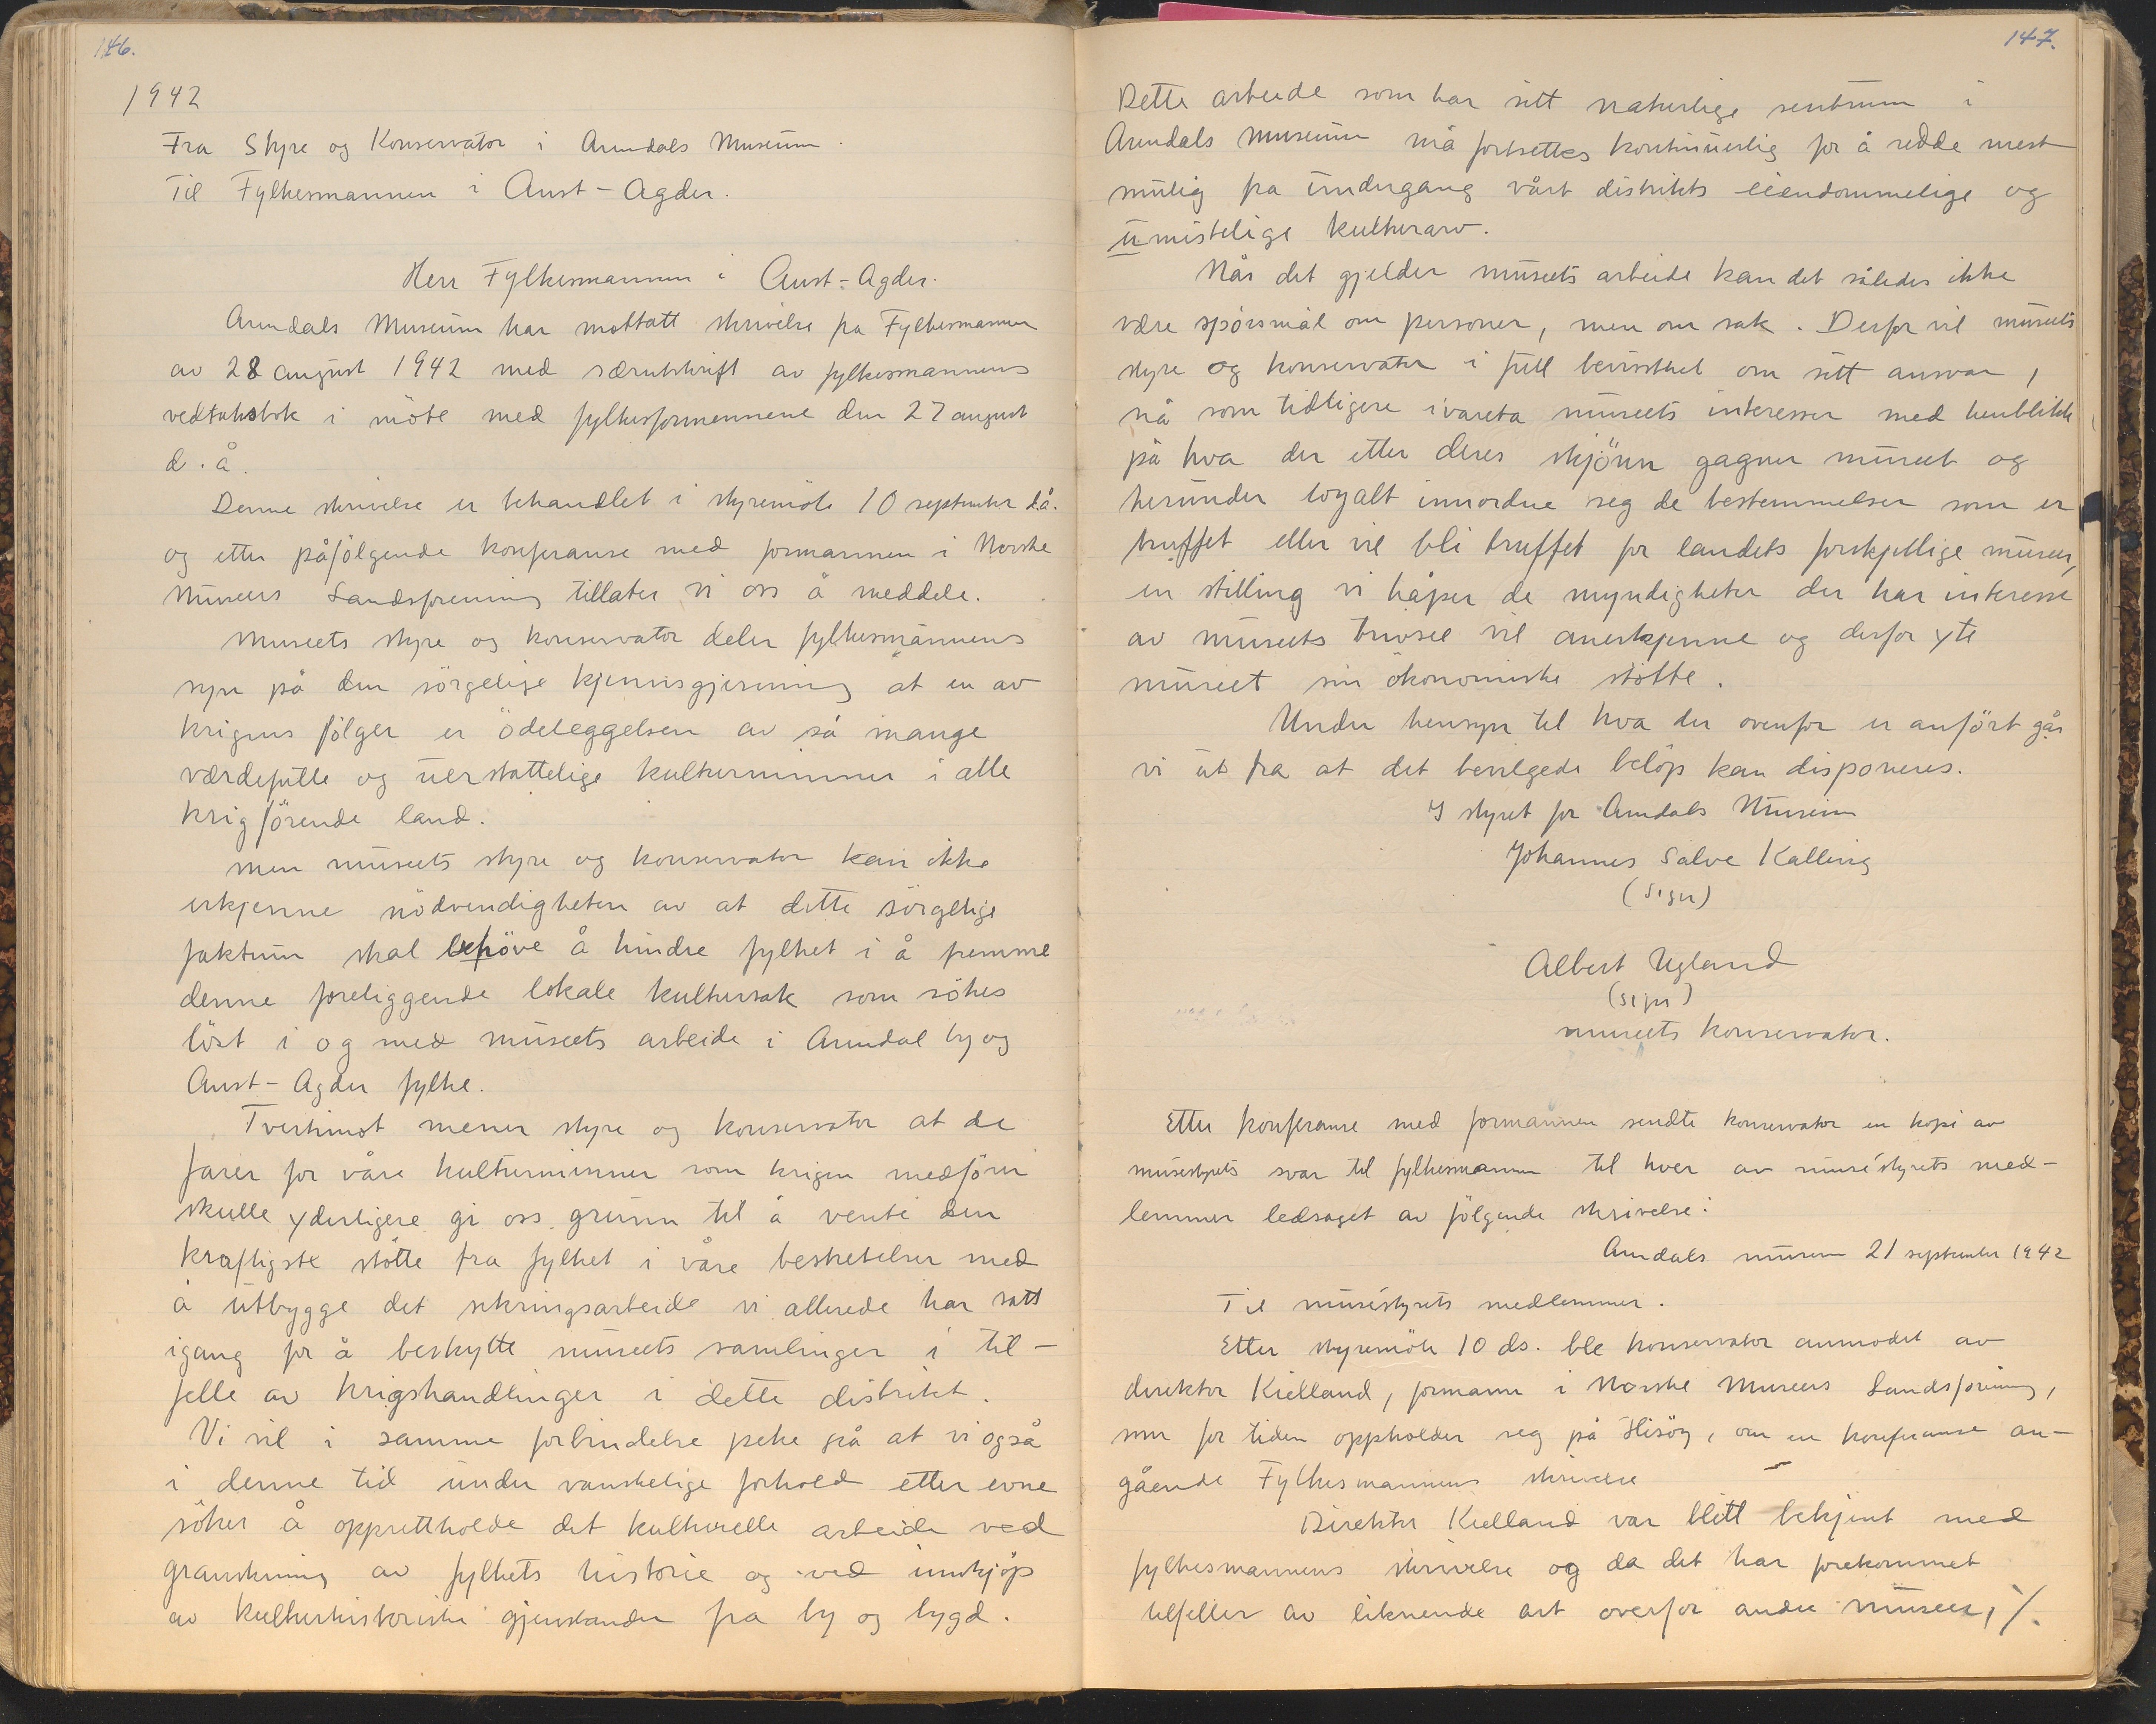 146.
1942
Fra Styre og Konservator i Arendals Museum.
Til Fylkesmannen i Aust-Agder.
Herr Fylkesmannen i Aust-Agder.
Arendals Museum har mottatt skrivelse fra Fylkesmannen
av 28 august 1942 med særutskrift av fylkesmannens
vedtaksbok i möte med fylkesformennene den 27 august
d.å.
Denne skrivelse er behandlet i styremöte 10 september d.å.
og etter påfölgende konferanse med formannen i Norske
Museers Landsforening tillater vi oss å meddele.
Museets styre og konservator deler fylkesmannens
syn på den sörgelige kjennsgjerning at en av
krigens fölger er ödeleggelsen av så mange
værdefulle og uerstattelige kulturminner i alle
krigförende land.
Men museets styre og konservator kan ikke
erkjenne nödvendigheten av at dette sörgelige
faktum skal behöve å hindre fylket i å fremme
denne foreliggende lokale kultursak som sökes
löst i og med museets arbeide i Arendal by og
Aust-Agder fylke.
Tvertimot mener styre og konservator at de
farer for våre kulturminner som krigen medförer
skulle yderligere gi oss grunn til å vente den
kraftigste stötte fra fylket i våre bestrebelser med
å utbygge det sikringsarbeide vi allerede har satt
igang for å beskytte museets samlinger i til-
felle av krigshandlinger i dette distriktet.
Vi vil i samme forbindelse peke på at vi også
i denne tid under vanskelige forhold etter evne
söker å opprettholde det kulturelle arbeide ved
granskning av fylkets historie og ved innkjöp
av kulturhistoriske gjenstander fra by og bygd.
147.
Dette arbeide som har sitt naturlige sentrum i
Arendals Museum må fortsettes kontinuerlig for å redde mest
mulig fra undergang vårt distrikts eiendommelige og
umistelige kulturarv.
Når det gjelder museets arbeide kan det således ikke
være spörsmål om personer, men om sak. Derfor vil museets
styre og konservator i full bevissthet om sitt ansvar,
nå som tidligere ivareta museets interesser med henblikk
på hva der etter deres skjönn gagner museet og
herunder loyalt innordne seg de bestemmelser som er
truffet eller vil bli truffet for landets forskjellige museer,
en stilling vi håper de myndigheter der har interesse
av museets trivsel vil anerkjenne og derfor yte
museet sin ökonomiske stötte.
Under hensyn til hva der ovenfor er anfört går
vi ut fra at det bevilgede belöp kan disponeres.
I styret for Arendals Museum
Johannes Salve Kallevig
(sign)
Albert Ugland
(sign)
museets konservator.
Etter konferanse med formannen sendte konservator en kopi av
musestyrets svar til fylkesmannen til hver av muséstyrets med-
lemmer ledsaget av fölgende skrivelse:
Arendals museum 21 september 1942
Til muséstyrets medlemmer.
Etter styremöte 10 ds. ble konservator anmodet av
direktör Kielland, formann i Norske Museers Landsforening,
som for tiden oppholder seg på Hisöy, om en konferanse an-
gående Fylkesmannens skrivelse
Direktör Kielland var blitt bekjent med
fylkesmannens skrivelse og da det har forekommet
tilfeller av liknende art overfor andre museer, ·/.